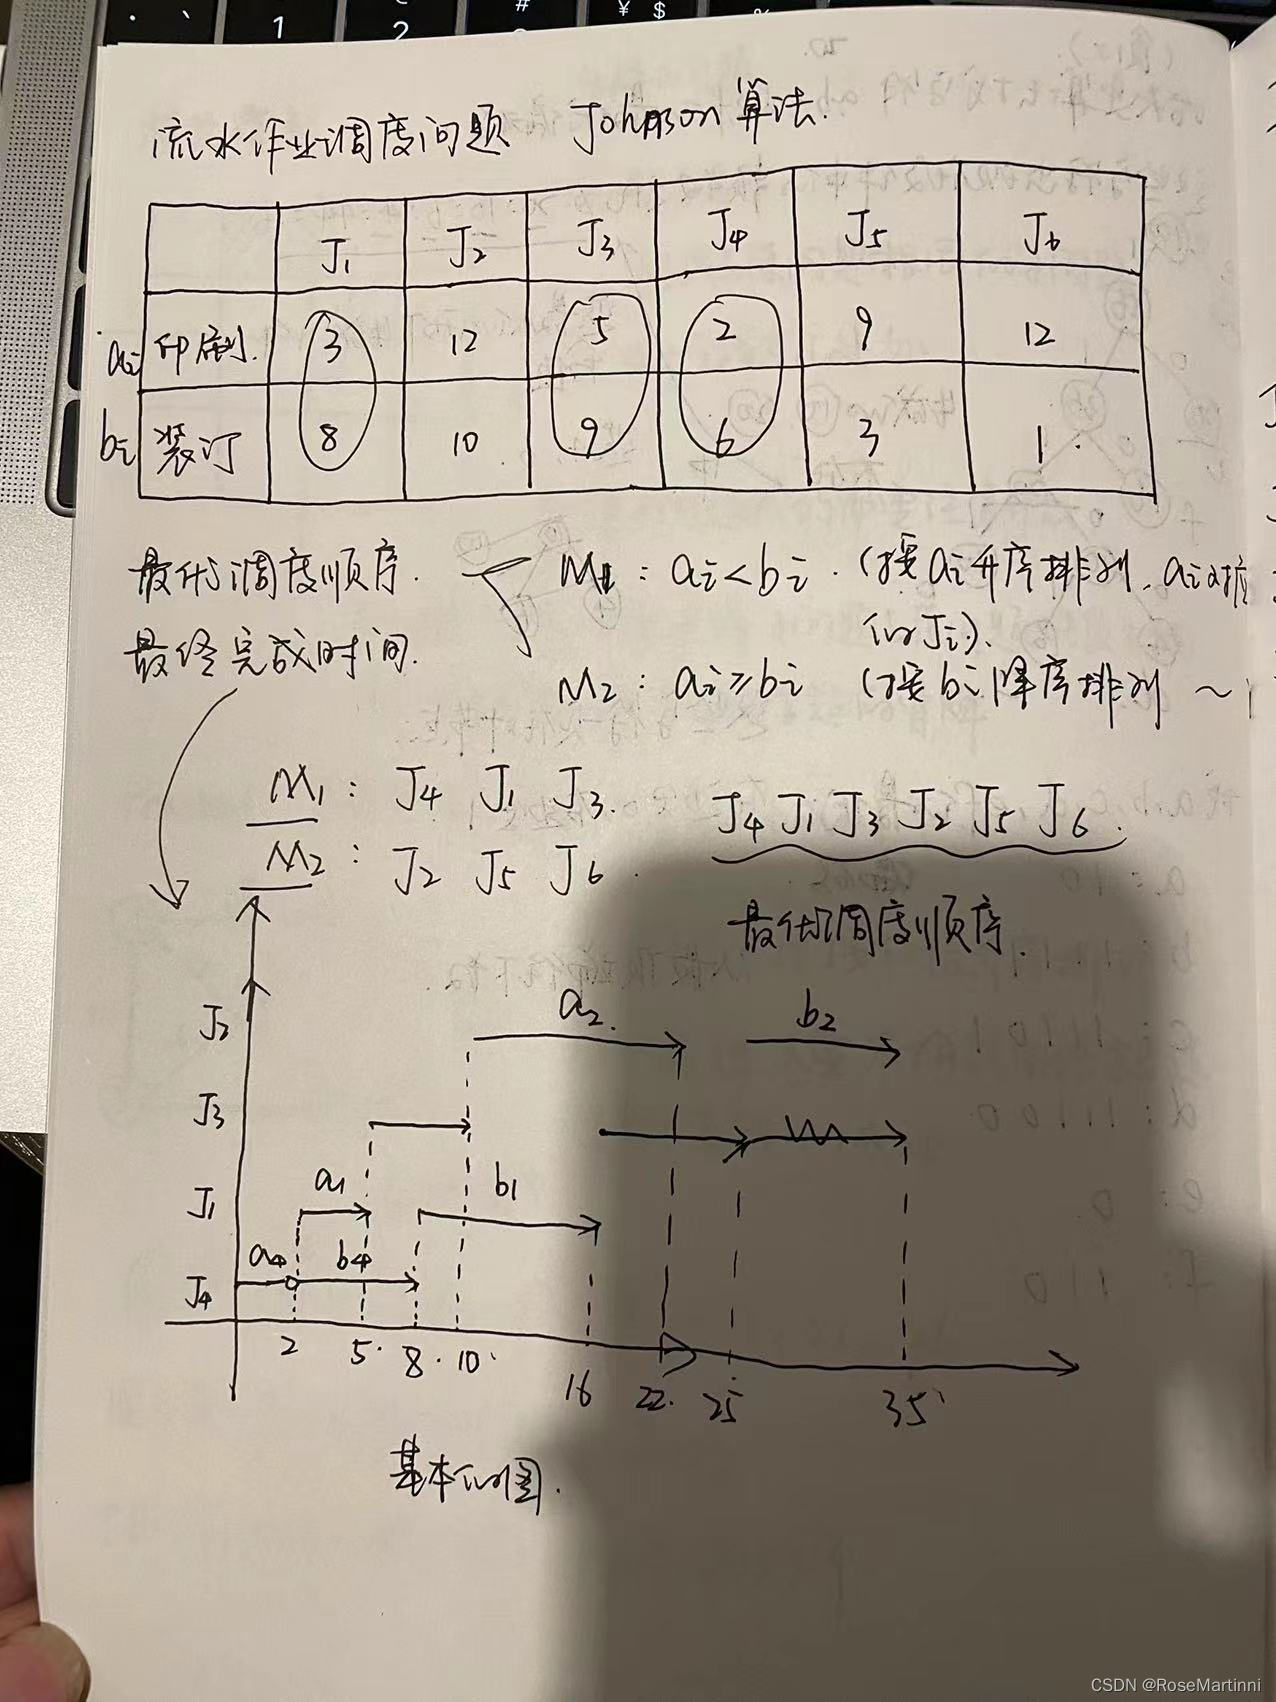 流水作业调度问题 Johnson 算法.
J1 J2 J3 J4 J5 J6
ai 印刷. 3 12 5 2 9 12
bi 装订 8 10 9 6 3 1
最优调度顺序. M1: ai<bi. (按ai升序排列, ai对应
的Ji).
最终完成时间. M2: ai≥bi (按bi降序排列 ~
M1: J4 J1 J3. J4 J1 J3 J2 J5 J6.
M2: J2 J5 J6.
最优调度顺序.
J2 a2. b2
J3
J1 a1 b1
J4 a4 b4
2 5 8 10 16 22 25 35
基本的图.
CSDN @RoseMartinni